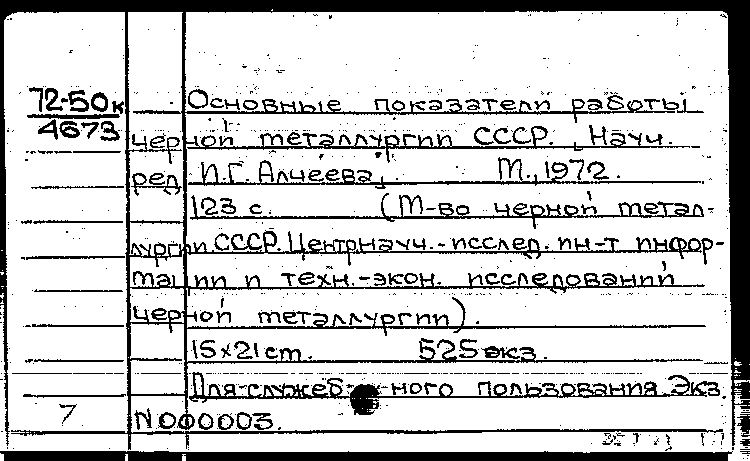 72-50к
4673
Основные показатели работы
черной металлургии СССР. Науч.
ред. И.Г. Алчеева. М., 1972.
123 с. (М-во черной метал-
лургии СССР. Центр.науч.-исслед. ин-т инфор-
мации и техн.-экон. исследований
черной металлургии).
15х21cm. 525 экз.
Для служеб- ного пользования. Экз.
N000003.
7